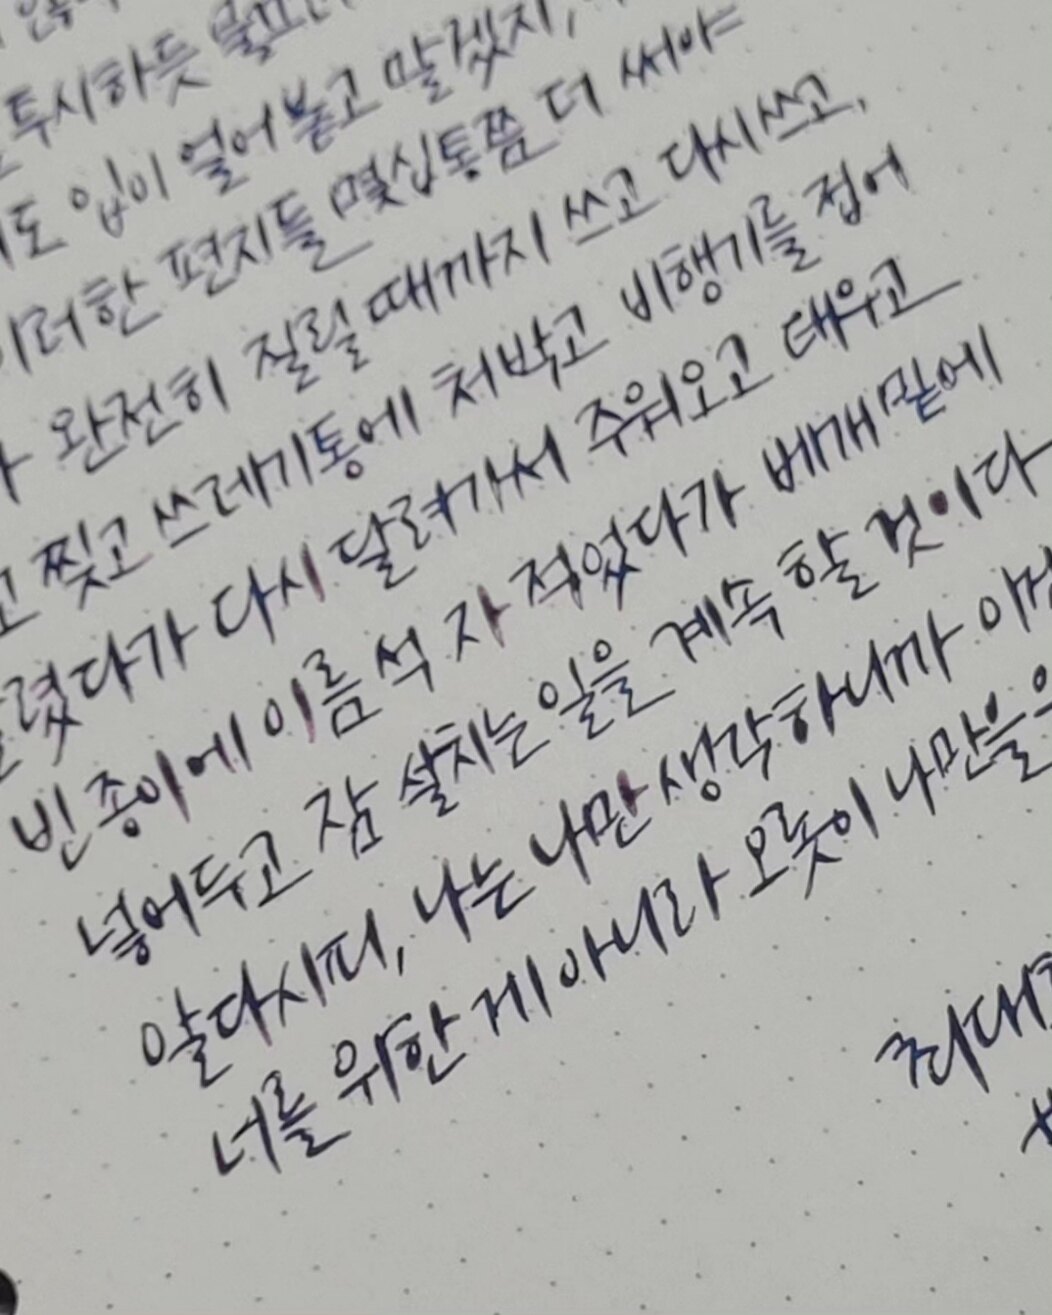 투시하듯
입이 얼어붙고 말겠지,
이러한 편지들 몇십통쯤 더 써야
완전히 질릴 때까지 쓰고 다시쓰고,
찢고 쓰레기통에 처박고 비행기를 접어
날렸다가 다시 달려가서 주워오고 태우고
빈 종이에 이름 석 자 적었다가 베개 밑에
넣어두고 잠 설치는 일을 계속 할 것이다
알다시피, 나는 나만 생각하니까 이건
너를 위한 게 아니라 오롯이 나만을 위
최대